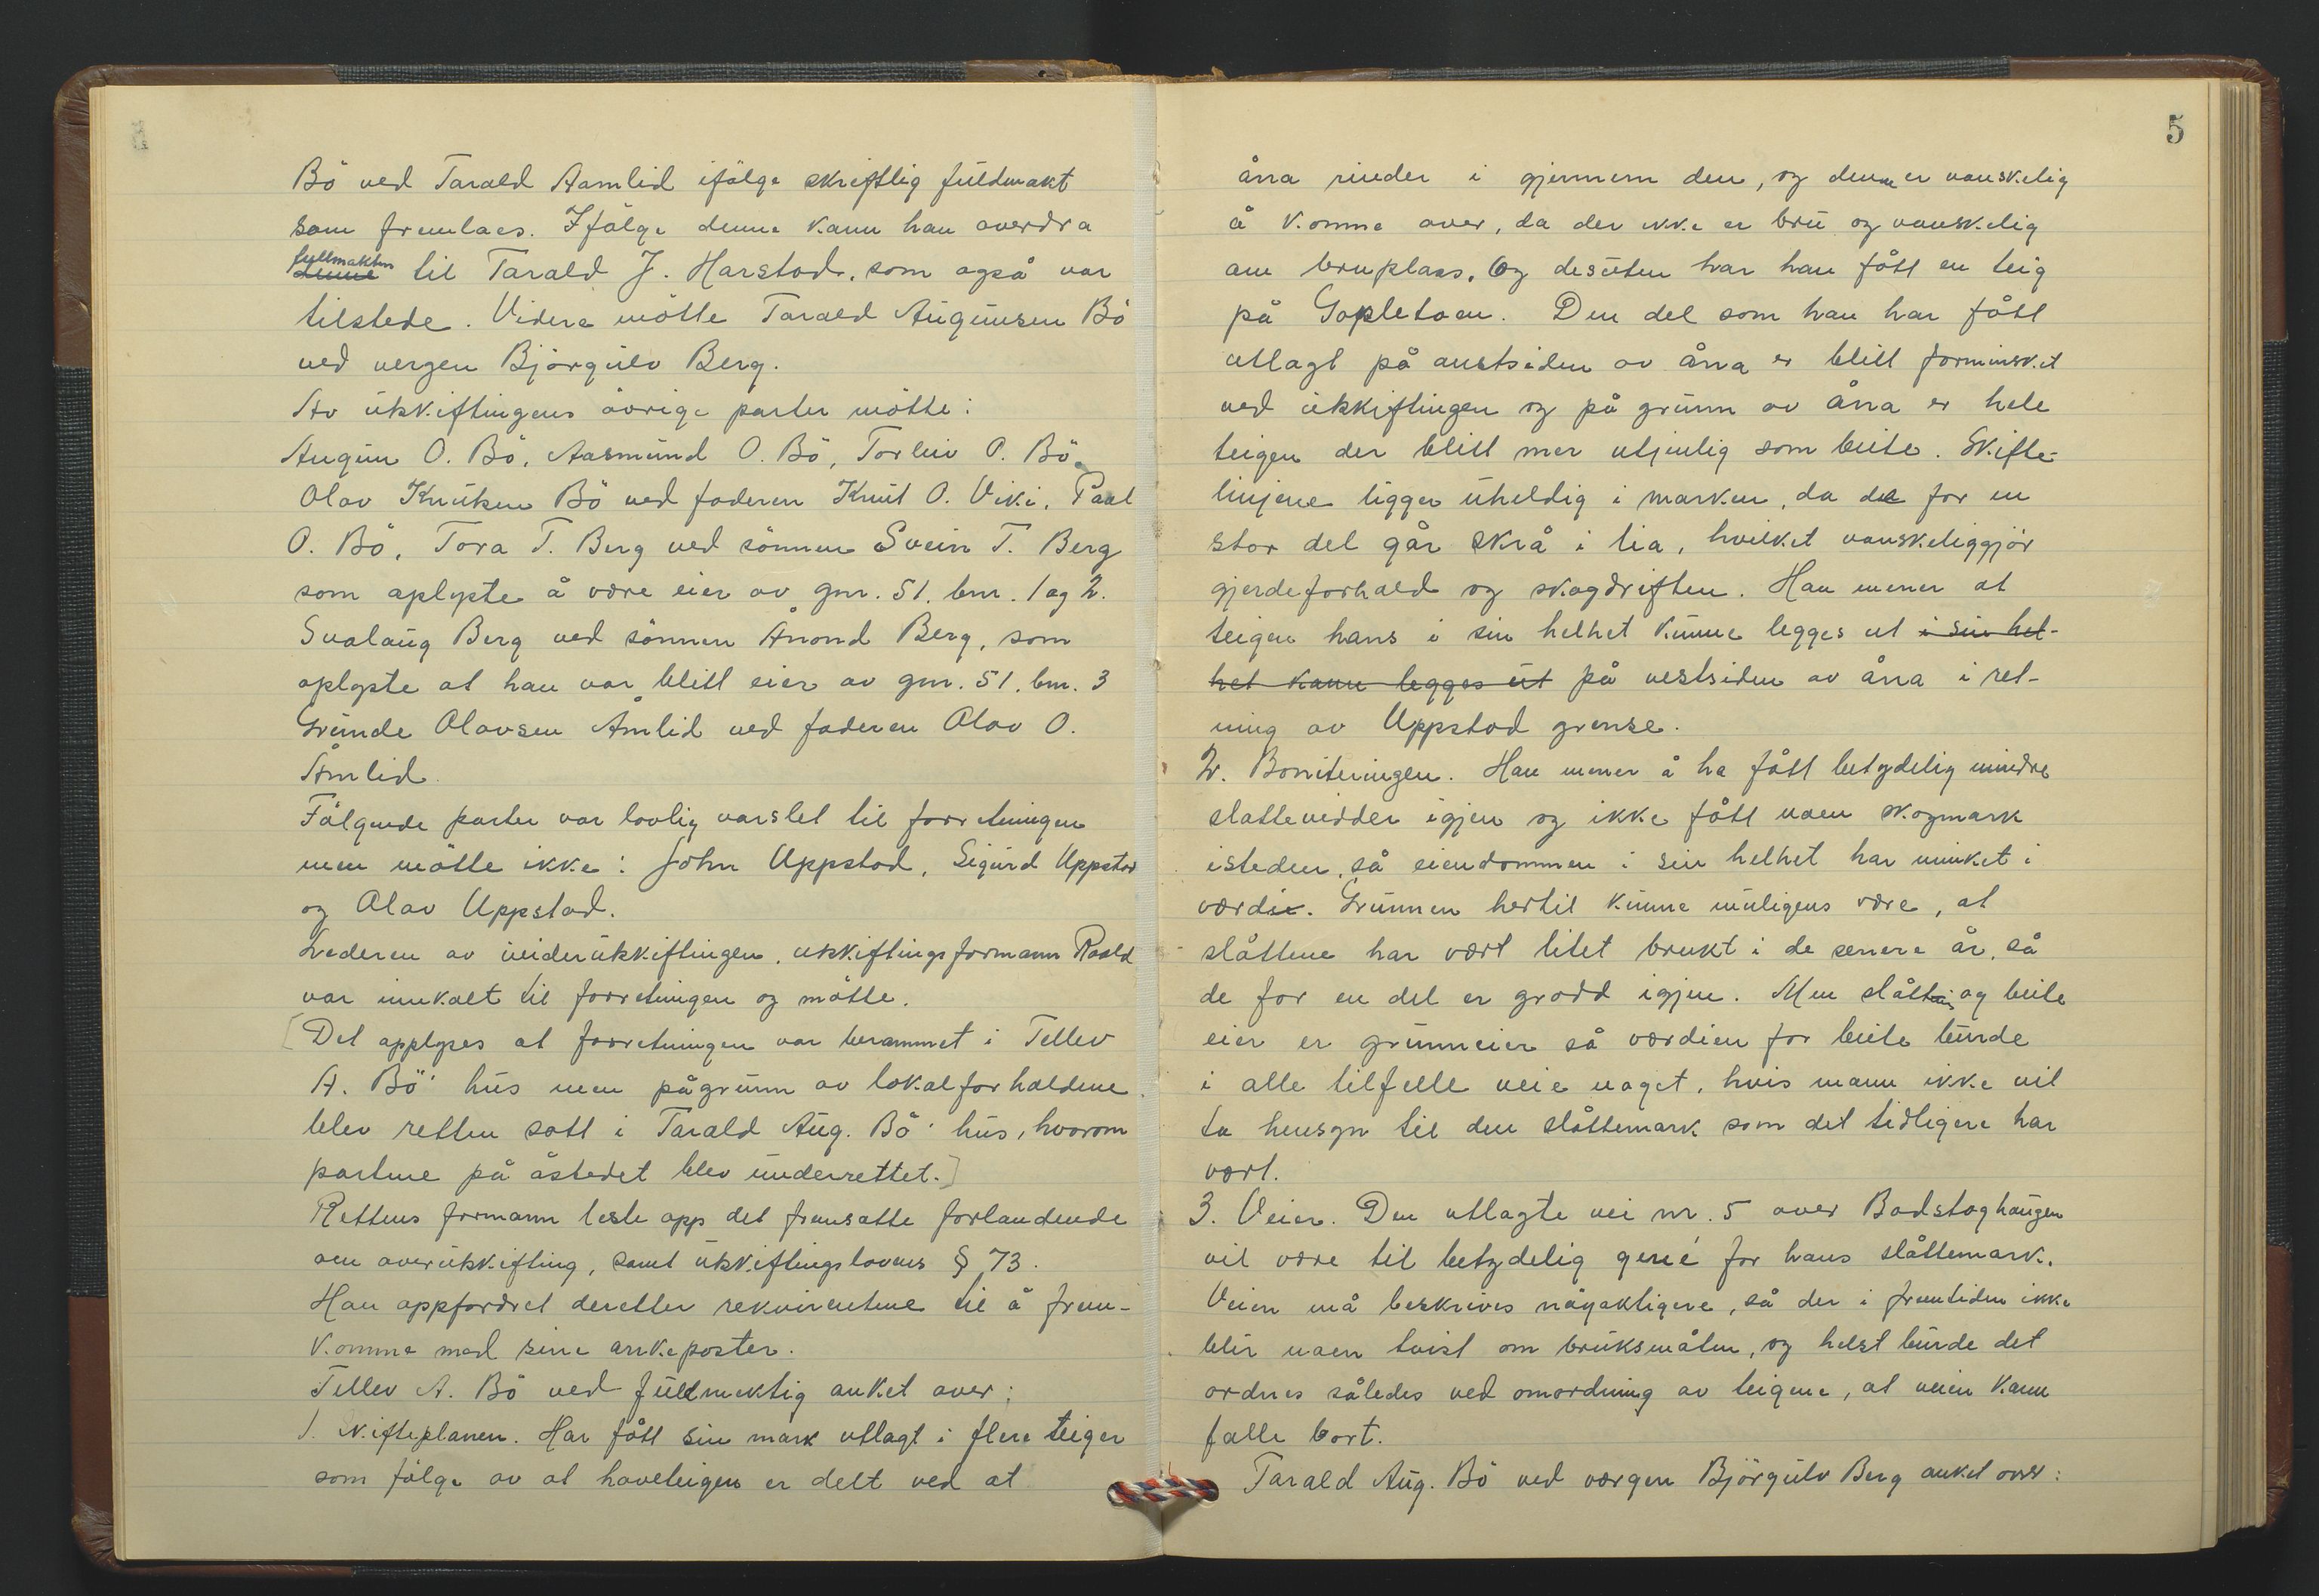 Bö ved Tarald Aamlid ifölge skriftlig fuldmakt
som fremlaes. Ifölge denne kann han overdra
fullmakten
denne til Tarald J. Harstad, som også var
tilstede. Videre mötte Tarald Augunsen Bö
ved vergen Björgulv Berg.
Av utskiftingens övrige parter mötte:
Augun O. Bö, Aasmund O. Bö, Torleiv P. Bö,
Olav Knutsen Bö ved faderen Knut O. Viki, Paal
O. Bö, Tora T. Berg ved sönnen Svein T. Berg
som oplyste å være eier av gnr. 51. bnr. 1 og 2.
Svalaug Berg ved sönnen Ånond Berg, som
oplyste at han var blitt eier av gnr. 51. bnr. 3
Grunde Olavsen Åmlid ved faderen Olav O.
Åmlid.
Fölgende parter var lovlig varslet til forretningen
men mötte ikke: John Uppstad, Sigurd Uppstad
og Olav Uppstad.
Lederen av underutskiftingen, utskiftingsformann Roald
var innkalt til forretningen og mötte.
[Det opplyses at forretningen var berammet i Tellev
A. Bö' hus men pågrunn av lokalforholdene
blev retten satt i Tarald Aug. Bö' hus, hvorom
partene på åstedet blev underrettet.]
Rettens formann leste opp det fremsatte forlangende
om overutskifting, samt utskiftingslovens § 73.
Han oppfordret deretter rekvirentene til å frem-
komme med sine ankeposter.
Tellev A. Bö ved fullmektig anket over:
1. Skifteplanen. Har fått sin mark utlagt i flere teiger
som fölge av at hoveteigen er delt ved at
5
åna rinder i gjennem den, og denne er vanskelig
å komme over, da der ikke er bru og vanskelig
om bruplass. Og desuten har han fått en teig
på Gopletoen. Den del som han har fått
utlagt på austsiden av åna er blitt forminsket
ved utskiftingen og på grunn av åna er hele
teigen der blitt mer utjenlig som beite. Skifte-
linjene ligger uheldig i marken, da de for en
stor del går skrå i lia, hvilket vanskeliggjör
gjerdeforhold og skogdriften. Han mener at
teigen hans i sin helhet kunne legges ut i sin hel-
het kann legges ut på vestsiden av åna i ret-
ning av Uppstad grense.
2. Boniteringen. Han mener å ha fått betydelig mindre
slattevidder igjen og ikke fått noen skogmark
isteden, så eiendommen i sin helhet har minket i
verdie. Grunnen hertil kunne muligens være, at
slåttene har vært litet brukt i de senere år, så
de for en del er grodd igjen. Men slåtte og beite
eier er grunneier så verdien for beite burde
i alle tilfelle veie noget, hvis mann ikke vil
ta hensyn til den slåttemark som det tidligere har
vært.
3. Veier. Den utlagte vei nr. 5 over Badstoghaugen
vil være til betydelig gene for hans slåttemark.
Veien må beskrives nöyaktigere, så der i fremtiden ikke
blir noen tvist om bruksmåten, og helst burde det
ordnes således ved omordning av teigene, at veien kann
falle bort.
Tarald Aug. Bö ved vergen Björgulv Berg anket over: